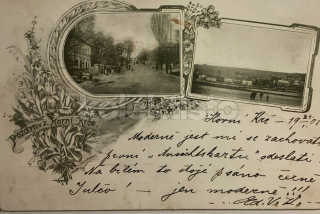 Pozdrav z Horní Krče
Horní Krč - 19 01
Moderně jest mi se zachovati
první „Ansichtskartu" odeslati
Na bílém to stojí psáno černě
Julčo! - jen moderně!!!